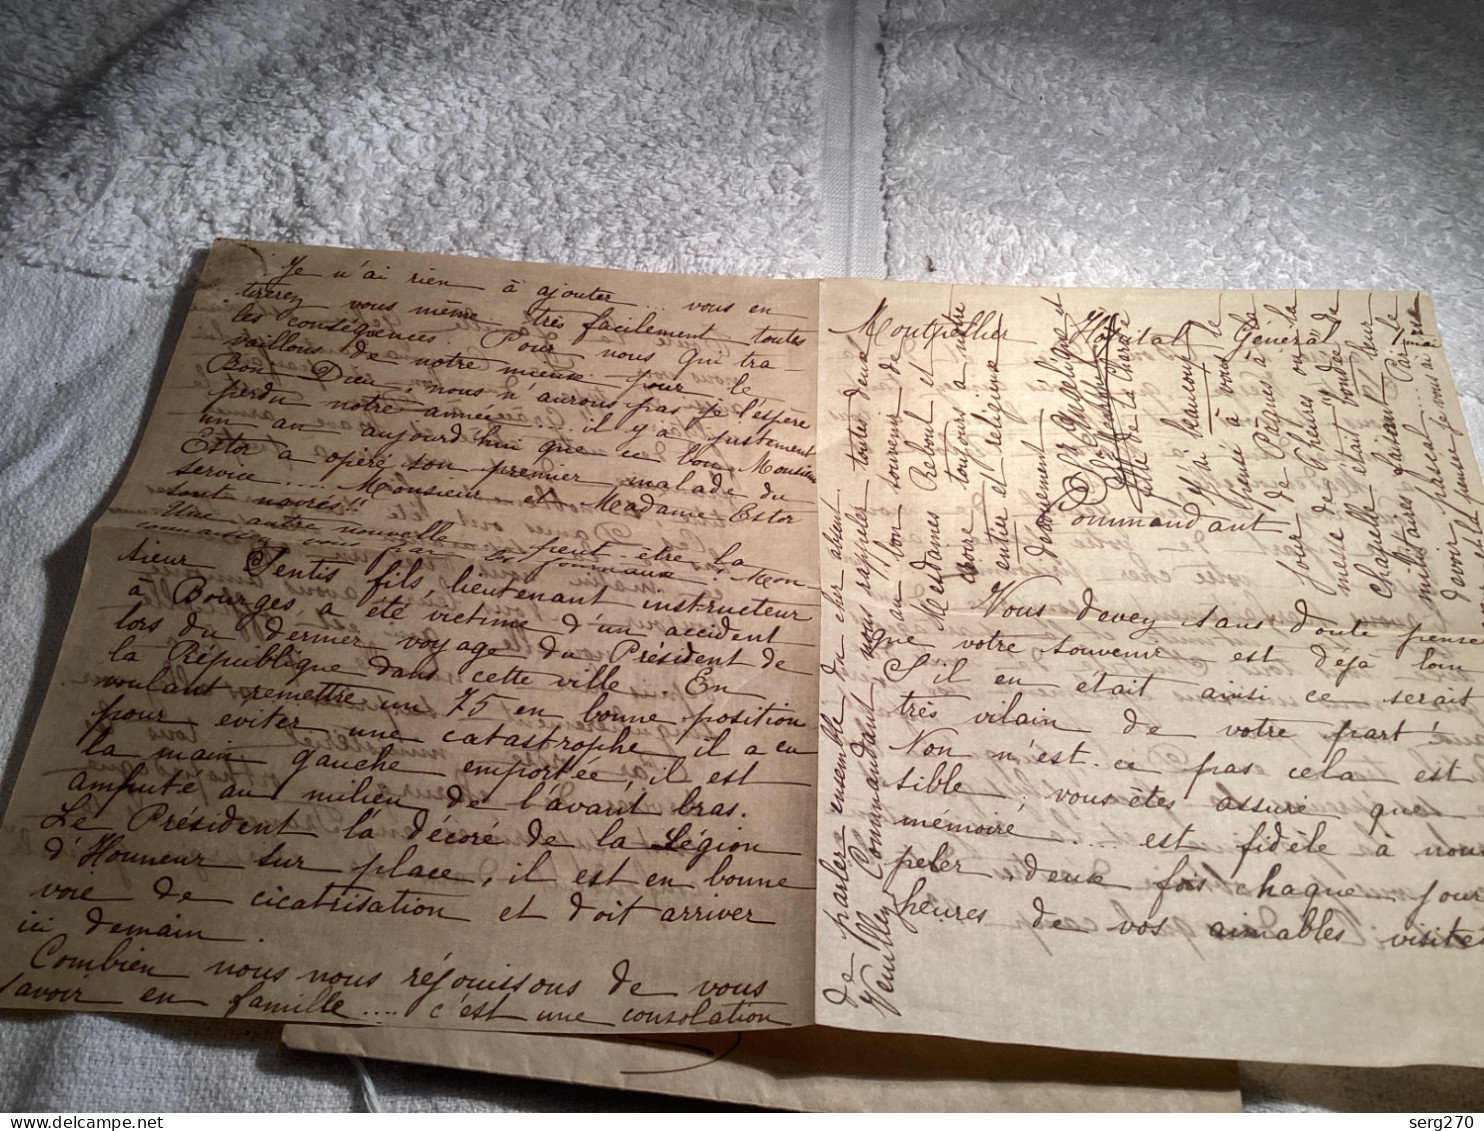 Je n'ai rien à ajouter... vous en
tirerez vous même très facilement toutes
les conséquences. Pour nous qui tra-
vaillons de notre mieux pour le
Bon Dieu, nous n'aurons pas je l'espère
perdu notre année... il y a justement
un an aujourd'hui que ce bon Monsieur
Estor a opéré son premier malade du
service.... Monsieur et Madame Estor
sont navrés!!
Une autre nouvelle peut-être la
connaissez vous par les journaux: Mon-
sieur Sentis fils, lieutenant instructeur
à Bourges, a été victime d'un accident
lors du dernier voyage du Président de
la République dans cette ville. En
voulant remettre un 75 en bonne position
pour eviter une catastrophe, il a eu
la main gauche emportée, il est
amputé au milieu de l'avant bras.
Le Président l'a décoré de la Légion
d'Honneur sur place, il est en bonne
voie de cicatrisation et doit arriver
ici demain.
Combien nous nous réjouissons de vous
savoir en famille.... c'est une consolation
Montpellier Hôpital Général
Commandant
Vous devez sans doute penser
que votre souvenir est déjà loin
S'il en était ainsi ce serait
très vilain de votre part!
Non n'est-ce pas cela est
sible, vous êtes assuré que
mémoire... est fidèle à nous
peler deux fois chaque jour
heures de vos aimables visites
de parler ensemble du cher absent.
Veuillez Commandant, nous rappeler toutes deux
au bon souvenir de
Mesdames Rebout et
croire toujours à notre
entier et religieux
dévouement
Sr Angélique et
fille de la Charité
J'ai beaucoup
pensé à vous le
jour de Pâques à la
messe de 6 heures où la
chapelle était bondée de
militaires faisant leur
devoir pascal... Par le
devoir pense je vous ai
serg270
serg270